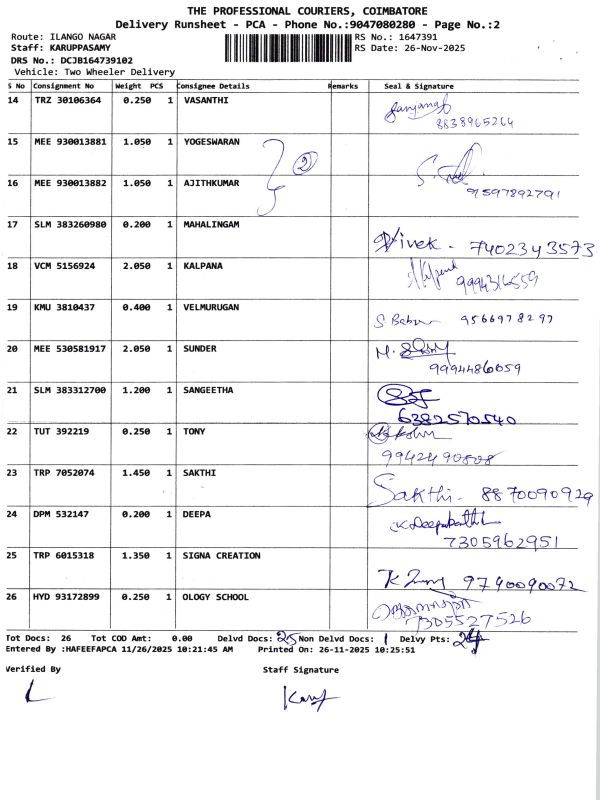 THE PROFESSIONAL COURIERS, COIMBATORE
Delivery Runsheet - PCA - Phone No.:9047080280 - Page No.:2
Route: ILANGO NAGAR RS No.: 1647391
Staff: KARUPPASAMY RS Date: 26-Nov-2025
DRS No.: DCJB164739102
Vehicle: Two Wheeler Delivery
S No Consignment No Weight PCS Consignee Details Remarks Seal & Signature
14 TRZ 30106364 0.250 1 VASANTHI
8838965264
15 MEE 930013881 1.050 1 YOGESWARAN
2
16 MEE 930013882 1.050 1 AJITHKUMAR
9597892791
17 SLM 383260980 0.200 1 MAHALINGAM
Vivek - 7402343573
18 VCM 5156924 2.050 1 KALPANA
9994316559
19 KMU 3810437 0.400 1 VELMURUGAN
S Babu 9566978297
20 MEE 530581917 2.050 1 SUNDER
9994486059
21 SLM 383312700 1.200 1 SANGEETHA
6382570540
22 TUT 392219 0.250 1 TONY
9942490808
23 TRP 7052074 1.450 1 SAKTHI
Sakthi - 8870090929
24 DPM 532147 0.200 1 DEEPA
7305962951
25 TRP 6015318 1.350 1 SIGNA CREATION
9790090072
26 HYD 93172899 0.250 1 OLOGY SCHOOL
7305527526
Tot Docs: 26 Tot COD Amt: 0.00 Delvd Docs: 25 Non Delvd Docs: 1 Delvy Pts: 24
Entered By :HAFEEFAPCA 11/26/2025 10:21:45 AM Printed On: 26-11-2025 10:25:51
Verified By Staff Signature